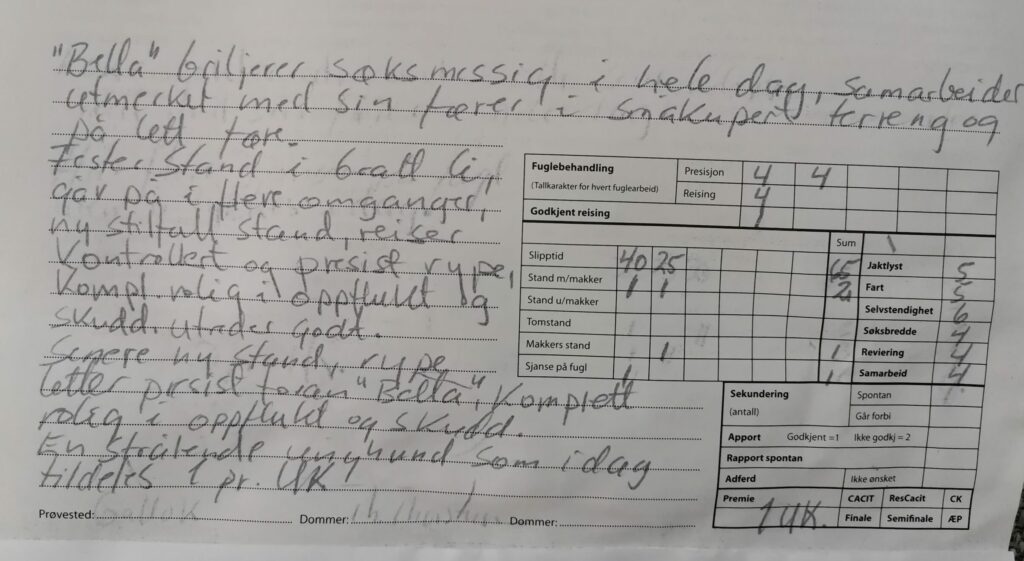 "Bella" briljerer søksmessig i hele dag, samarbeider
utmerket med sin fører i småkupert terreng og
på lett føre.
Fester stand i bratt li,
går på i flere omganger,
ny stilfull stand, reiser
kontrollert og presist rype,
kompl. rolig i oppflukt og
skudd, utreder godt.
Senere ny stand, rype
letter presist foran "Bella", komplett
rolig i oppflukt og skudd.
En strålende unghund som i dag
tildeles 1 pr. UK
Fuglebehandling
(Tallkarakter for hvert fuglearbeid)
Presisjon 4 4
Reising 4
Godkjent reising 1
Sum
Slipptid 40 25 65
Stand m/makker 1 1 2
Stand u/makker
Tomstand
Makkers stand 1 1
Sjanse på fugl 1 1
Jaktlyst 5
Fart 5
Selvstendighet 6
Søksbredde 4
Reviering 4
Samarbeid 4
Sekundering
(antall)
Spontan
Går forbi
Apport Godkjent =1 Ikke godkj = 2
Rapport spontan
Adferd Ikke ønsket
Premie 1 UK.
CACIT ResCacit CK
Finale Semifinale ÆP
Prøvested: Dommer: Dommer: